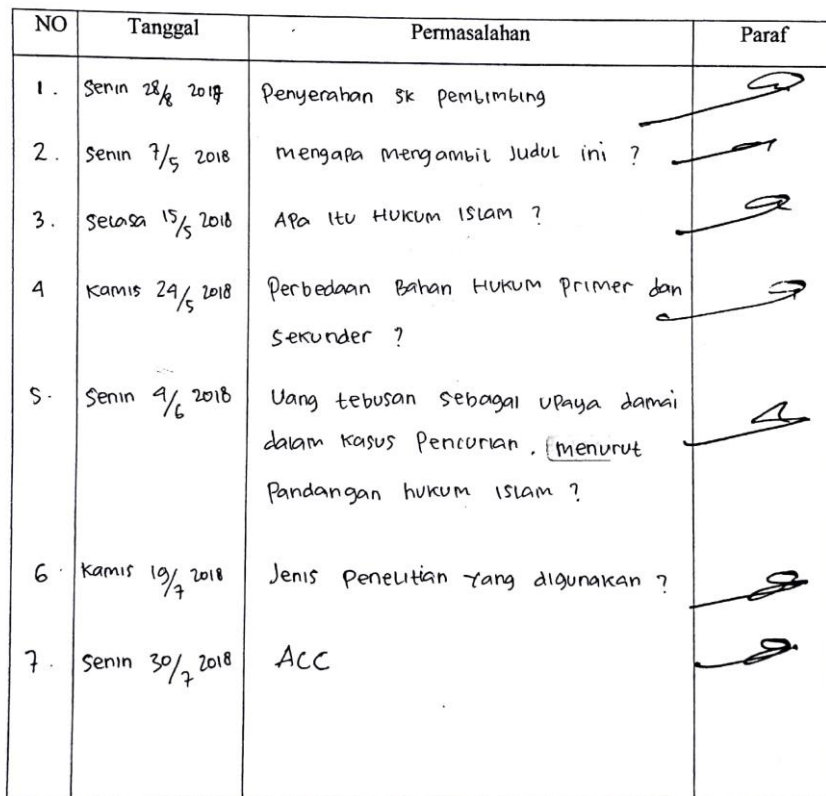 NO Tanggal Permasalahan Paraf
1. Senin 28/8 2017 Penyerahan SK Pembimbing
2. Senin 7/5 2018 mengapa mengambil Judul ini ?
3. Selasa 15/5 2018 Apa Itu HUKUM ISLAM ?
4 Kamis 24/5 2018 Perbedaan Bahan HUKUM Primer dan
Sekunder ?
5. Senin 4/6 2018 Uang tebusan sebagai upaya damai
dalam Kasus Pencurian, menurut
Pandangan hukum ISLam ?
6. Kamis 19/7 2018 Jenis Penelitian Yang digunakan ?
7. Senin 30/7 2018 ACC